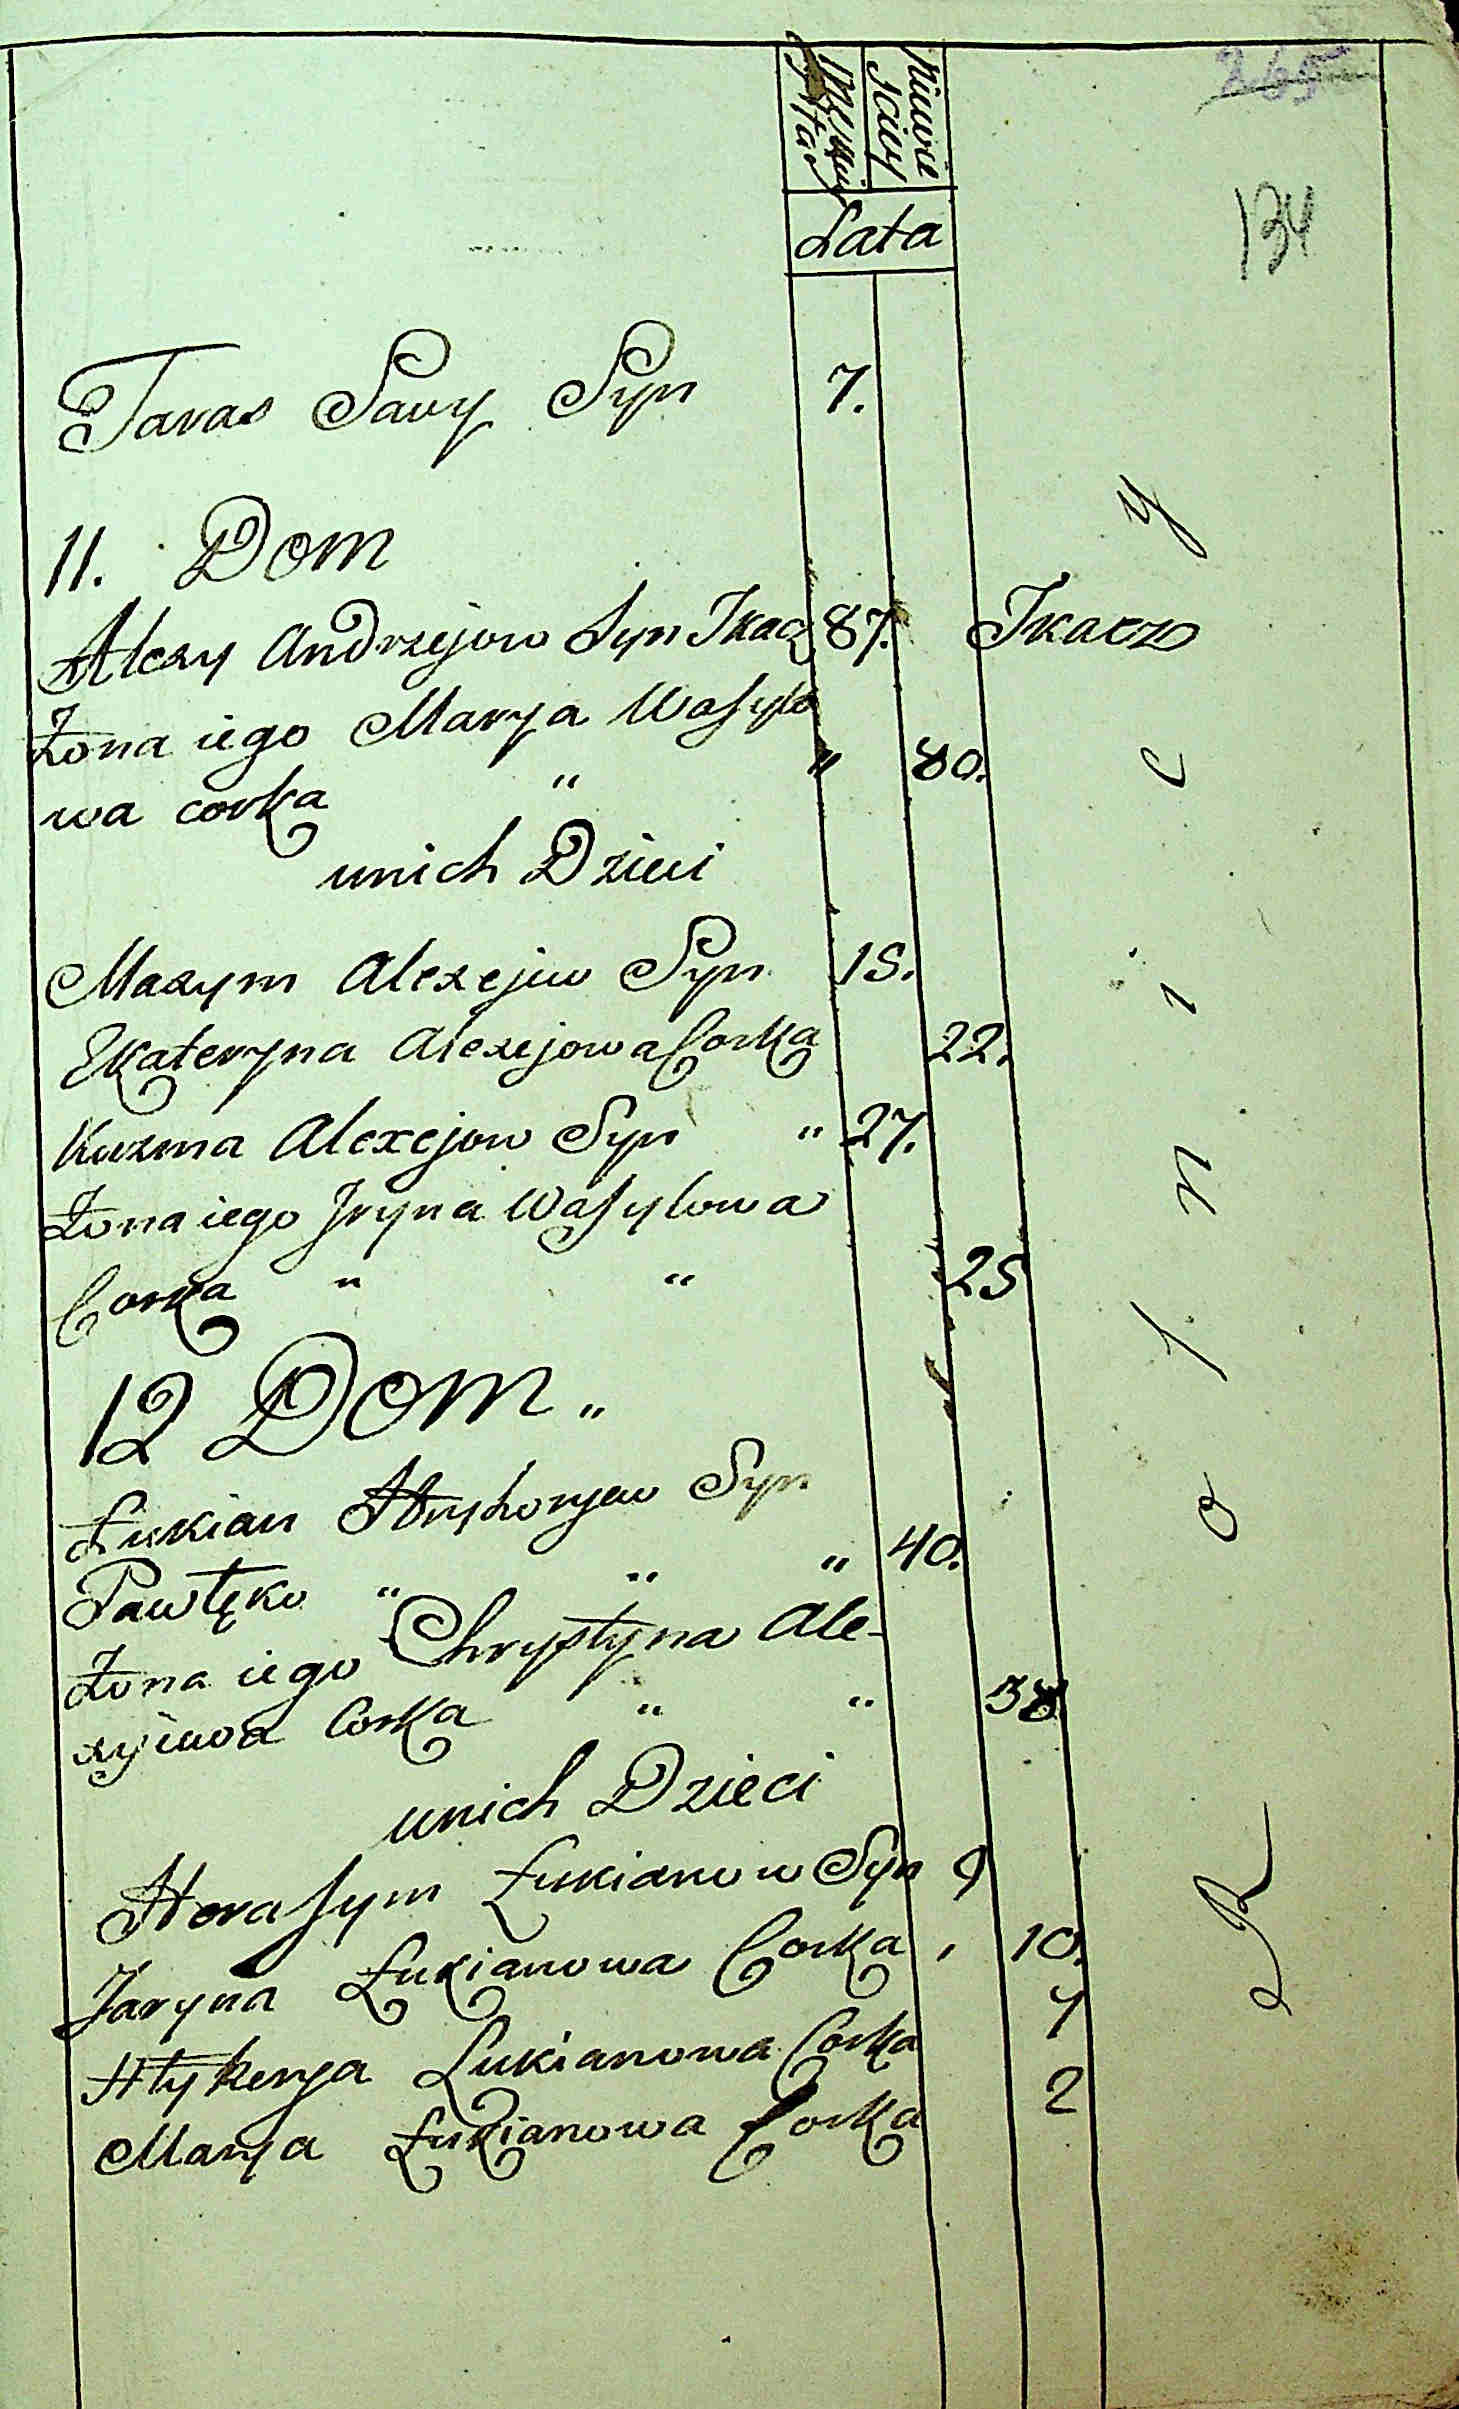 265
134
Niewie
sciey
Lata
Taras Savy Syn 7.
11. Dom
Alexy Andrzejow Syn Tkacz 87. Tkacz
Żona iego Marya Wasylo
wa corka " " 80.
unich Dzieci
Maxym Alexejow Syn 15.
Ekateryna Alexejowa Corka 22.
Kuzma Alexejow Syn " 27.
Żona iego Jryna Wasylowa
Corka " " 25
12 Dom "
Łukian Hryhoryew Syn
Pawłęko " " " 40.
Żona iego Chrystyna Ale-
xyiewa Corka " " 38
unich Dzieci
Herasym Łukianow Syn 9
Jaryna Łukianowa Corka , 10.
Hlykerya Lukianowa Corka 7
Marya Łukianowa Corka 2
Rolnicy